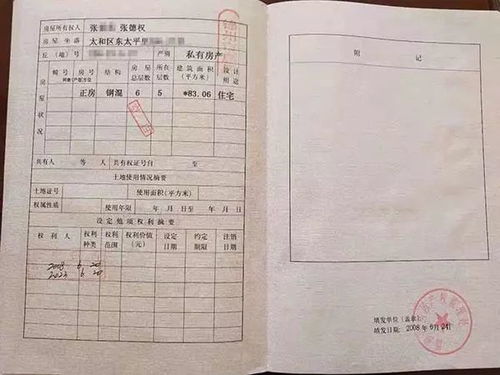 房屋所有权人 张 张德权
房屋坐落 太和区东太平里
丘(地)号 产别 私有房产
幢号 房号 结构 房屋总层数 所在层数 建筑面积(平方米) 设计用途
房屋状况 正房 钢混 6 5 *83.06 住宅
共有人 等 人 共有权证号自 至
土地使用情况摘要
土地证号 使用面积(平方米)
权属性质 使用年限 年 月 日至 年 月 日
设定他项权利摘要
权利人 权利种类 权利范围 权利价值(元) 设定日期 约定期限 注销日期
附记
填发单位(盖章)
填发日期: 2008年6月24日